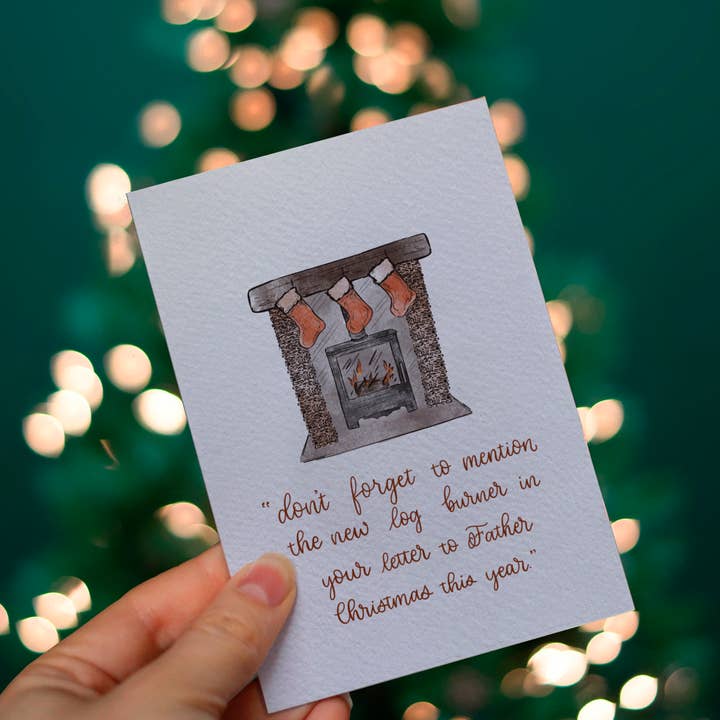 “don't forget to mention
the new log burner in
your letter to Father
Christmas this year.”